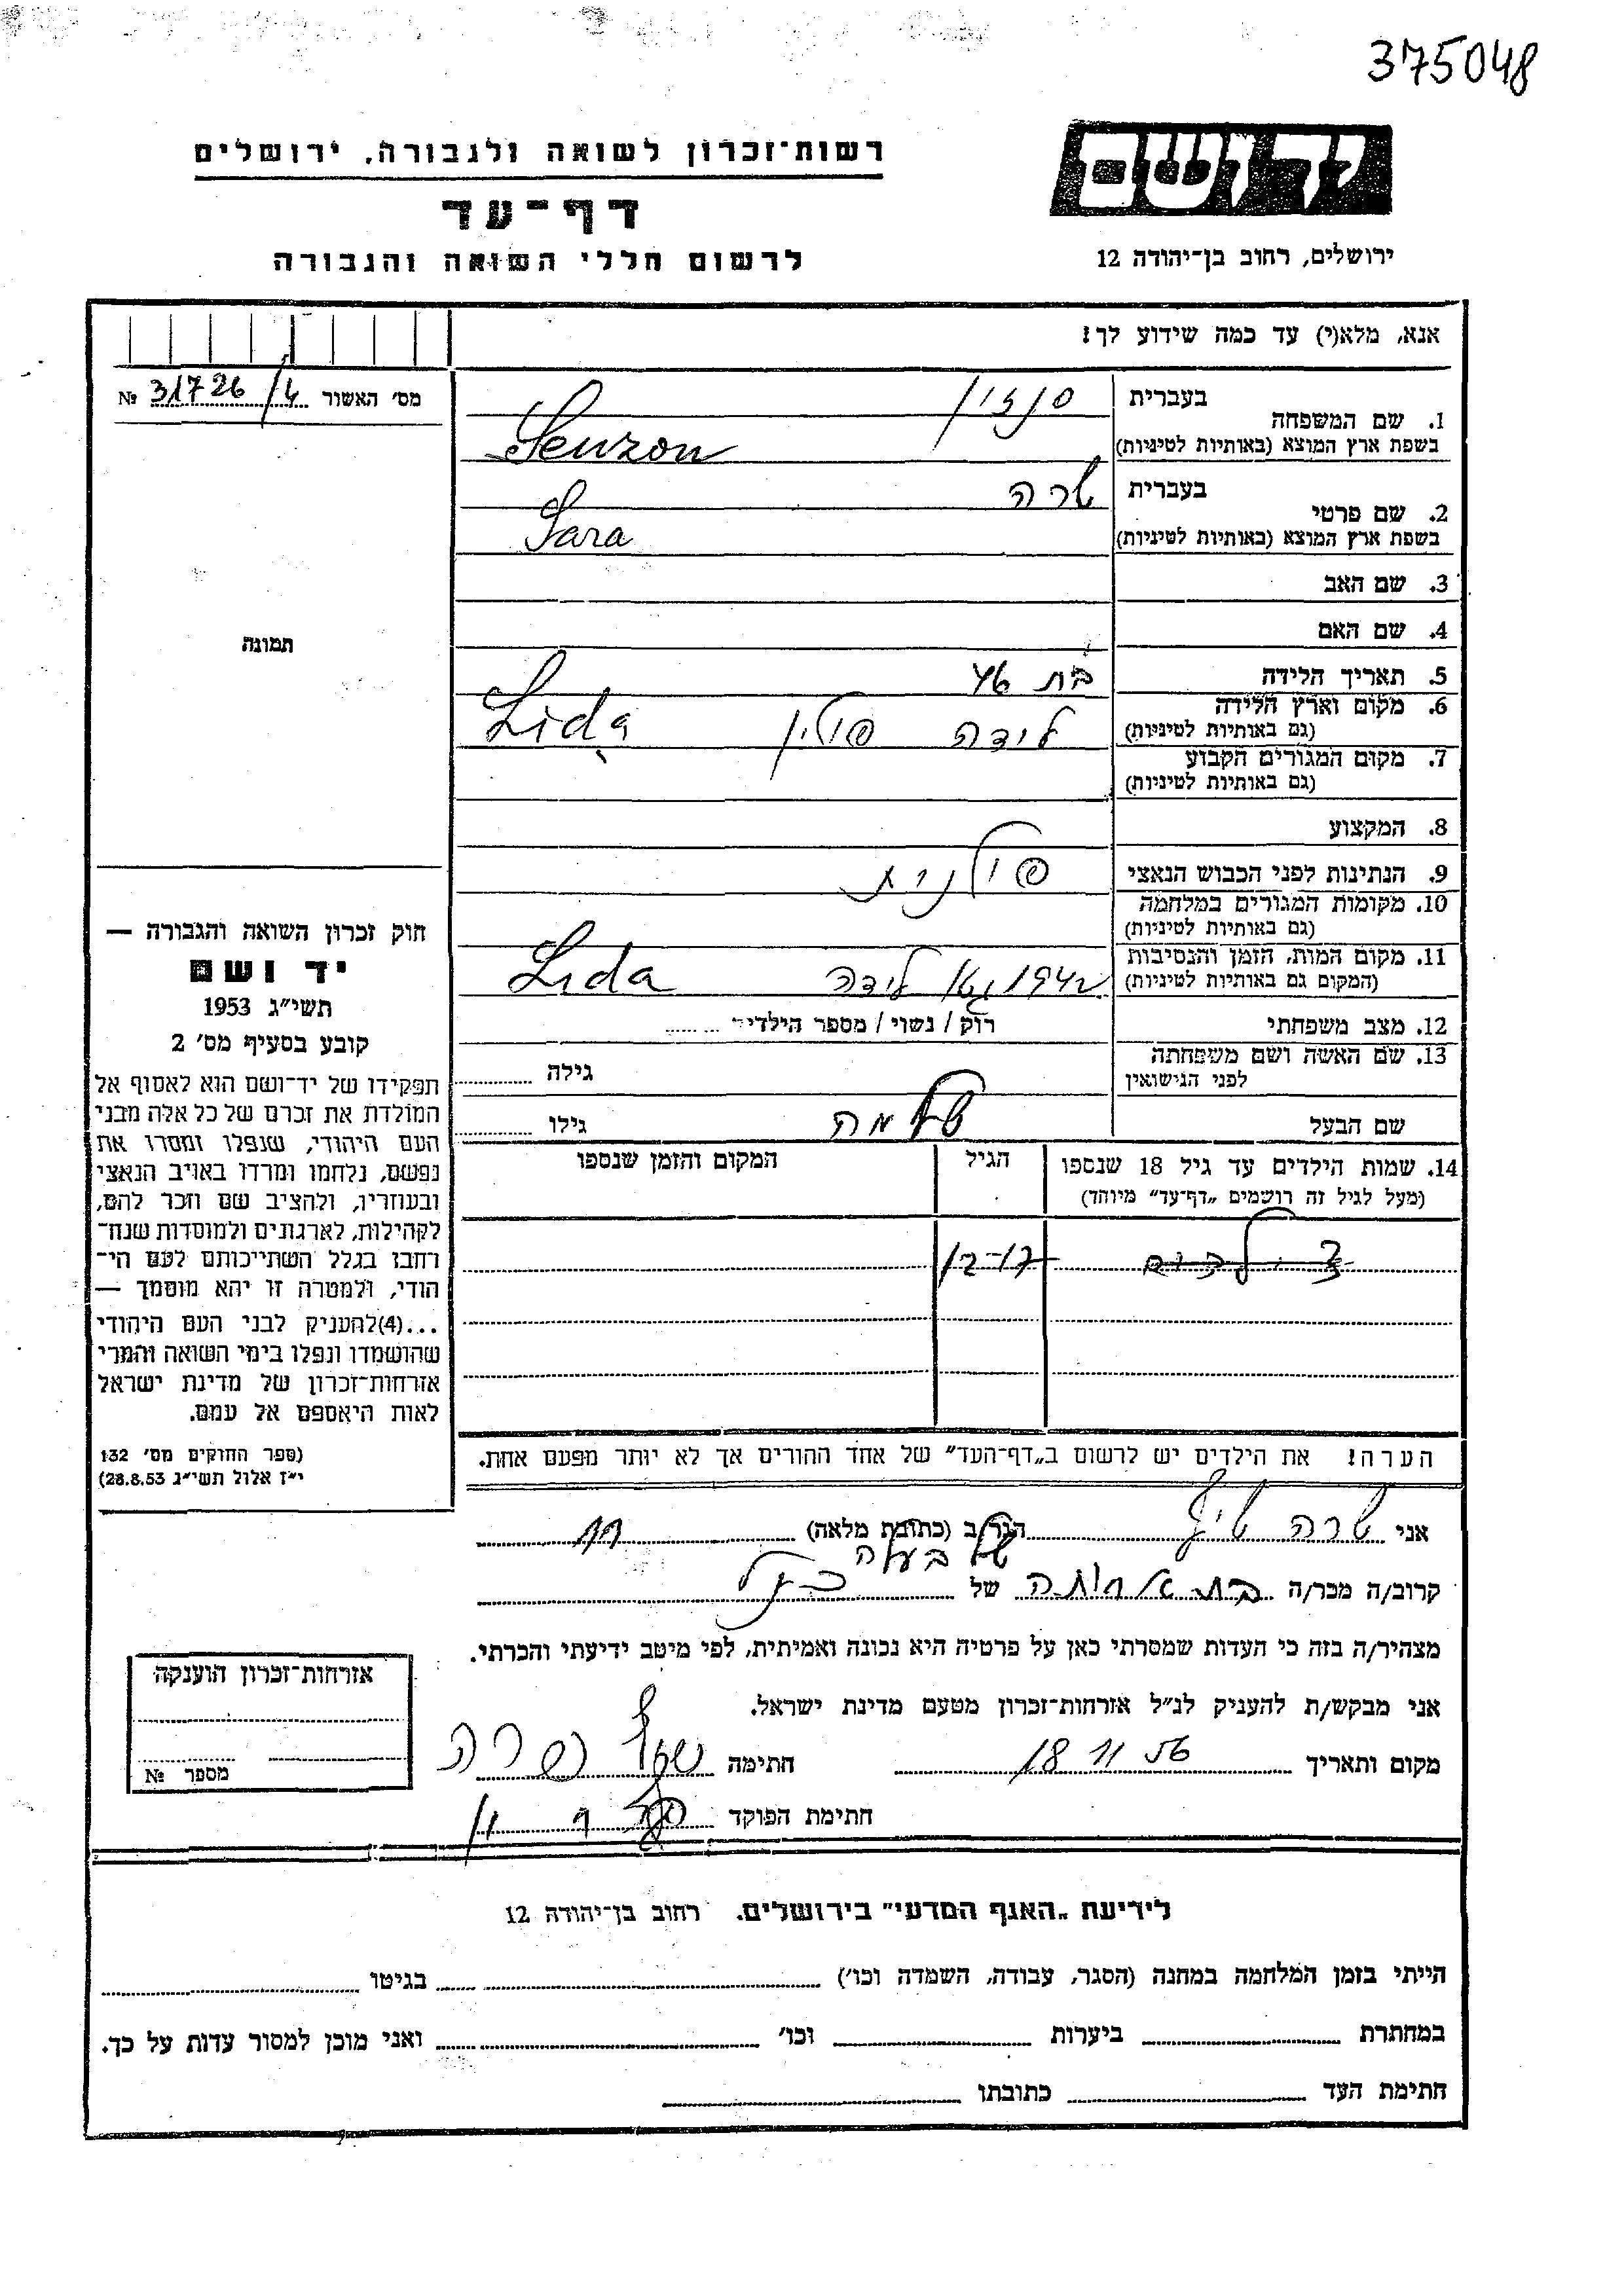 375048
יד ושם
ירושלים, רחוב בן־יהודה 12
רשות־זכרון לשואה ולגבורה, ירושלים
דף־עד
לרשום חללי השואה והגבורה
אנא, מלא(י) עד כמה שידוע לך!
מס׳ האשור 31726/4 №
תמונה
1. שם המשפחה בעברית סנזון
בשפת ארץ המוצא (באותיות לטיניות) Senzon
2. שם פרטי בעברית שרה
בשפת ארץ המוצא (באותיות לטיניות) Sara
3. שם האב
4. שם האם
5. תאריך הלידה בת 46
6. מקום וארץ הלידה לידה פולין Lida
(גם באותיות לטיניות)
7. מקום המגורים הקבוע
(גם באותיות לטיניות)
8. המקצוע
9. הנתינות לפני הכבוש הנאצי פולנית
10. מקומות המגורים במלחמה
(גם באותיות לטיניות)
11. מקום המות, הזמן והנסיבות 1942 גטו לידה Lida
(המקום גם באותיות לטיניות)
12. מצב משפחתי רוק / נשוי / מספר הילדים
13. שם האשה ושם משפחתה
לפני הנישואין גילה
שם הבעל שלמה גילו
14. שמות הילדים עד גיל 18 שנספו הגיל המקום והזמן שנספו
(מעל לגיל זה רושמים „דף־עד״ מיוחד)
12-17
הערה! את הילדים יש לרשום ב„דף־העד״ של אחד ההורים אך לא יותר מפעם אחת.
חוק זכרון השואה והגבורה —
יד ושם
תשי״ג 1953
קובע בסעיף מס׳ 2
תפקידו של יד־ושם הוא לאסוף אל
המולדת את זכרם של כל אלה מבני
העם היהודי, שנפלו ומסרו את
נפשם, נלחמו ומרדו באויב הנאצי
ובעוזריו, ולהציב שם וזכר להם,
לקהילות, לארגונים ולמוסדות שנח־
רבו בגלל השתייכותם לעם הי־
הודי, ולמטרה זו יהא מוסמך —
...(4)להעניק לבני העם היהודי
שהושמדו ונפלו בימי השואה והמרי
אזרחות־זכרון של מדינת ישראל
לאות היאספם אל עמם.
(ספר החוקים מס׳ 132
י״ז אלול תשי״ג 28.8.53)
אני שרה הגר/ב (כתובת מלאה)
קרוב/ה מכר/ה בת אחותה של של בעלה
מצהיר/ה בזה כי העדות שמסרתי כאן על פרטיה היא נכונה ואמיתית, לפי מיטב ידיעתי והכרתי.
אני מבקש/ת להעניק לנ״ל אזרחות־זכרון מטעם מדינת ישראל.
מקום ותאריך 18 11 56 חתימה שרה
חתימת הפוקד
אזרחות־זכרון הוענקה
מספר №
לידיעת „האגף המדעי״ בירושלים. רחוב בן־יהודה 12
הייתי בזמן המלחמה במחנה (הסגר, עבודה, השמדה וכו׳) בגיטו
במחתרת ביערות וכו׳ ואני מוכן למסור עדות על כך.
חתימת העד כתובתו